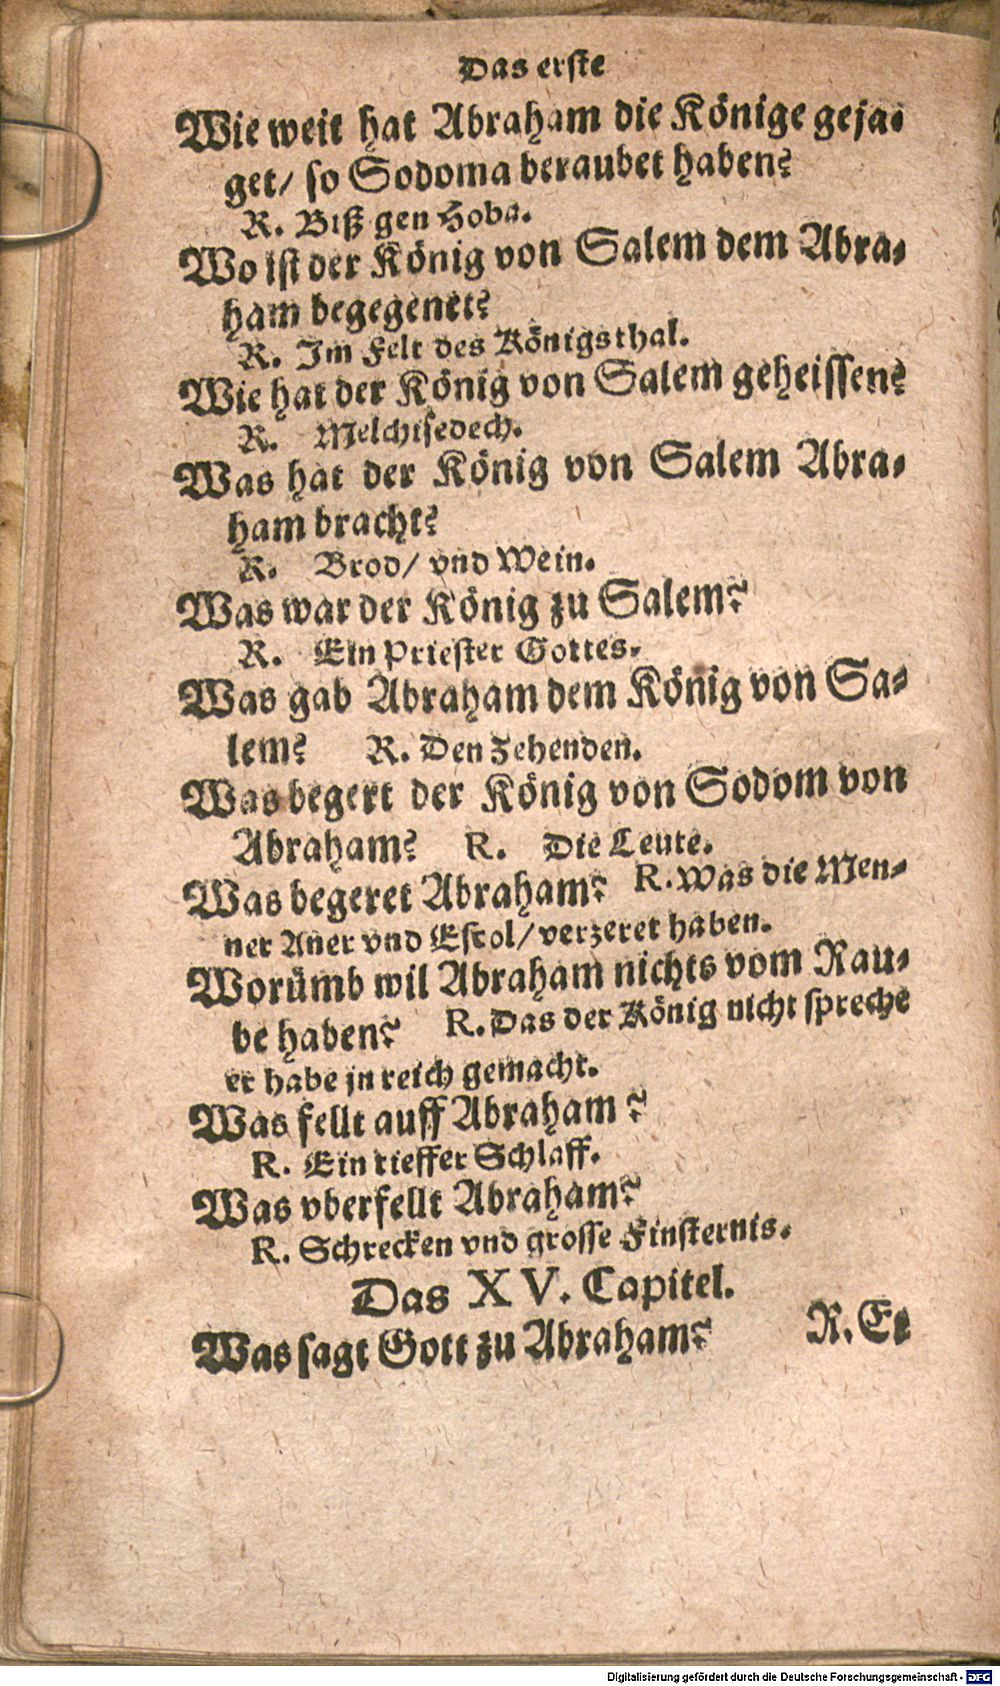 Das erste
Wie weit hat Abraham die Könige geja-
get/ so Sodoma beraubet haben?
R. Biß gen Hoba.
Wo ist der König von Salem dem Abra-
ham begegenet?
R. Im Felt des Königsthal.
Wie hat der König von Salem geheissen?
R. Melchisedech.
Was hat der König von Salem Abra-
ham bracht?
R. Brod/ vnd Wein.
Was war der König zu Salem?
R. Ein Priester Gottes.
Was gab Abraham dem König von Sa-
lem? R. Den Zehenden.
Was begert der König von Sodom von
Abraham? R. Die Leute.
Was begeret Abraham? R. Was die Men-
ner Aner vnd Escol/ verzeret haben.
Worümb wil Abraham nichts vom Rau-
be haben? R. Das der König nicht spreche
er habe jn reich gemacht.
Was fellt auff Abraham?
R. Ein tieffer Schlaff.
Was vberfellt Abraham?
R. Schrecken vnd grosse Finsternis.
Das XV. Capitel.
Was sagt Gott zu Abraham? R. Er
Digitalisierung gefördert durch die Deutsche Forschungsgemeinschaft - DFG